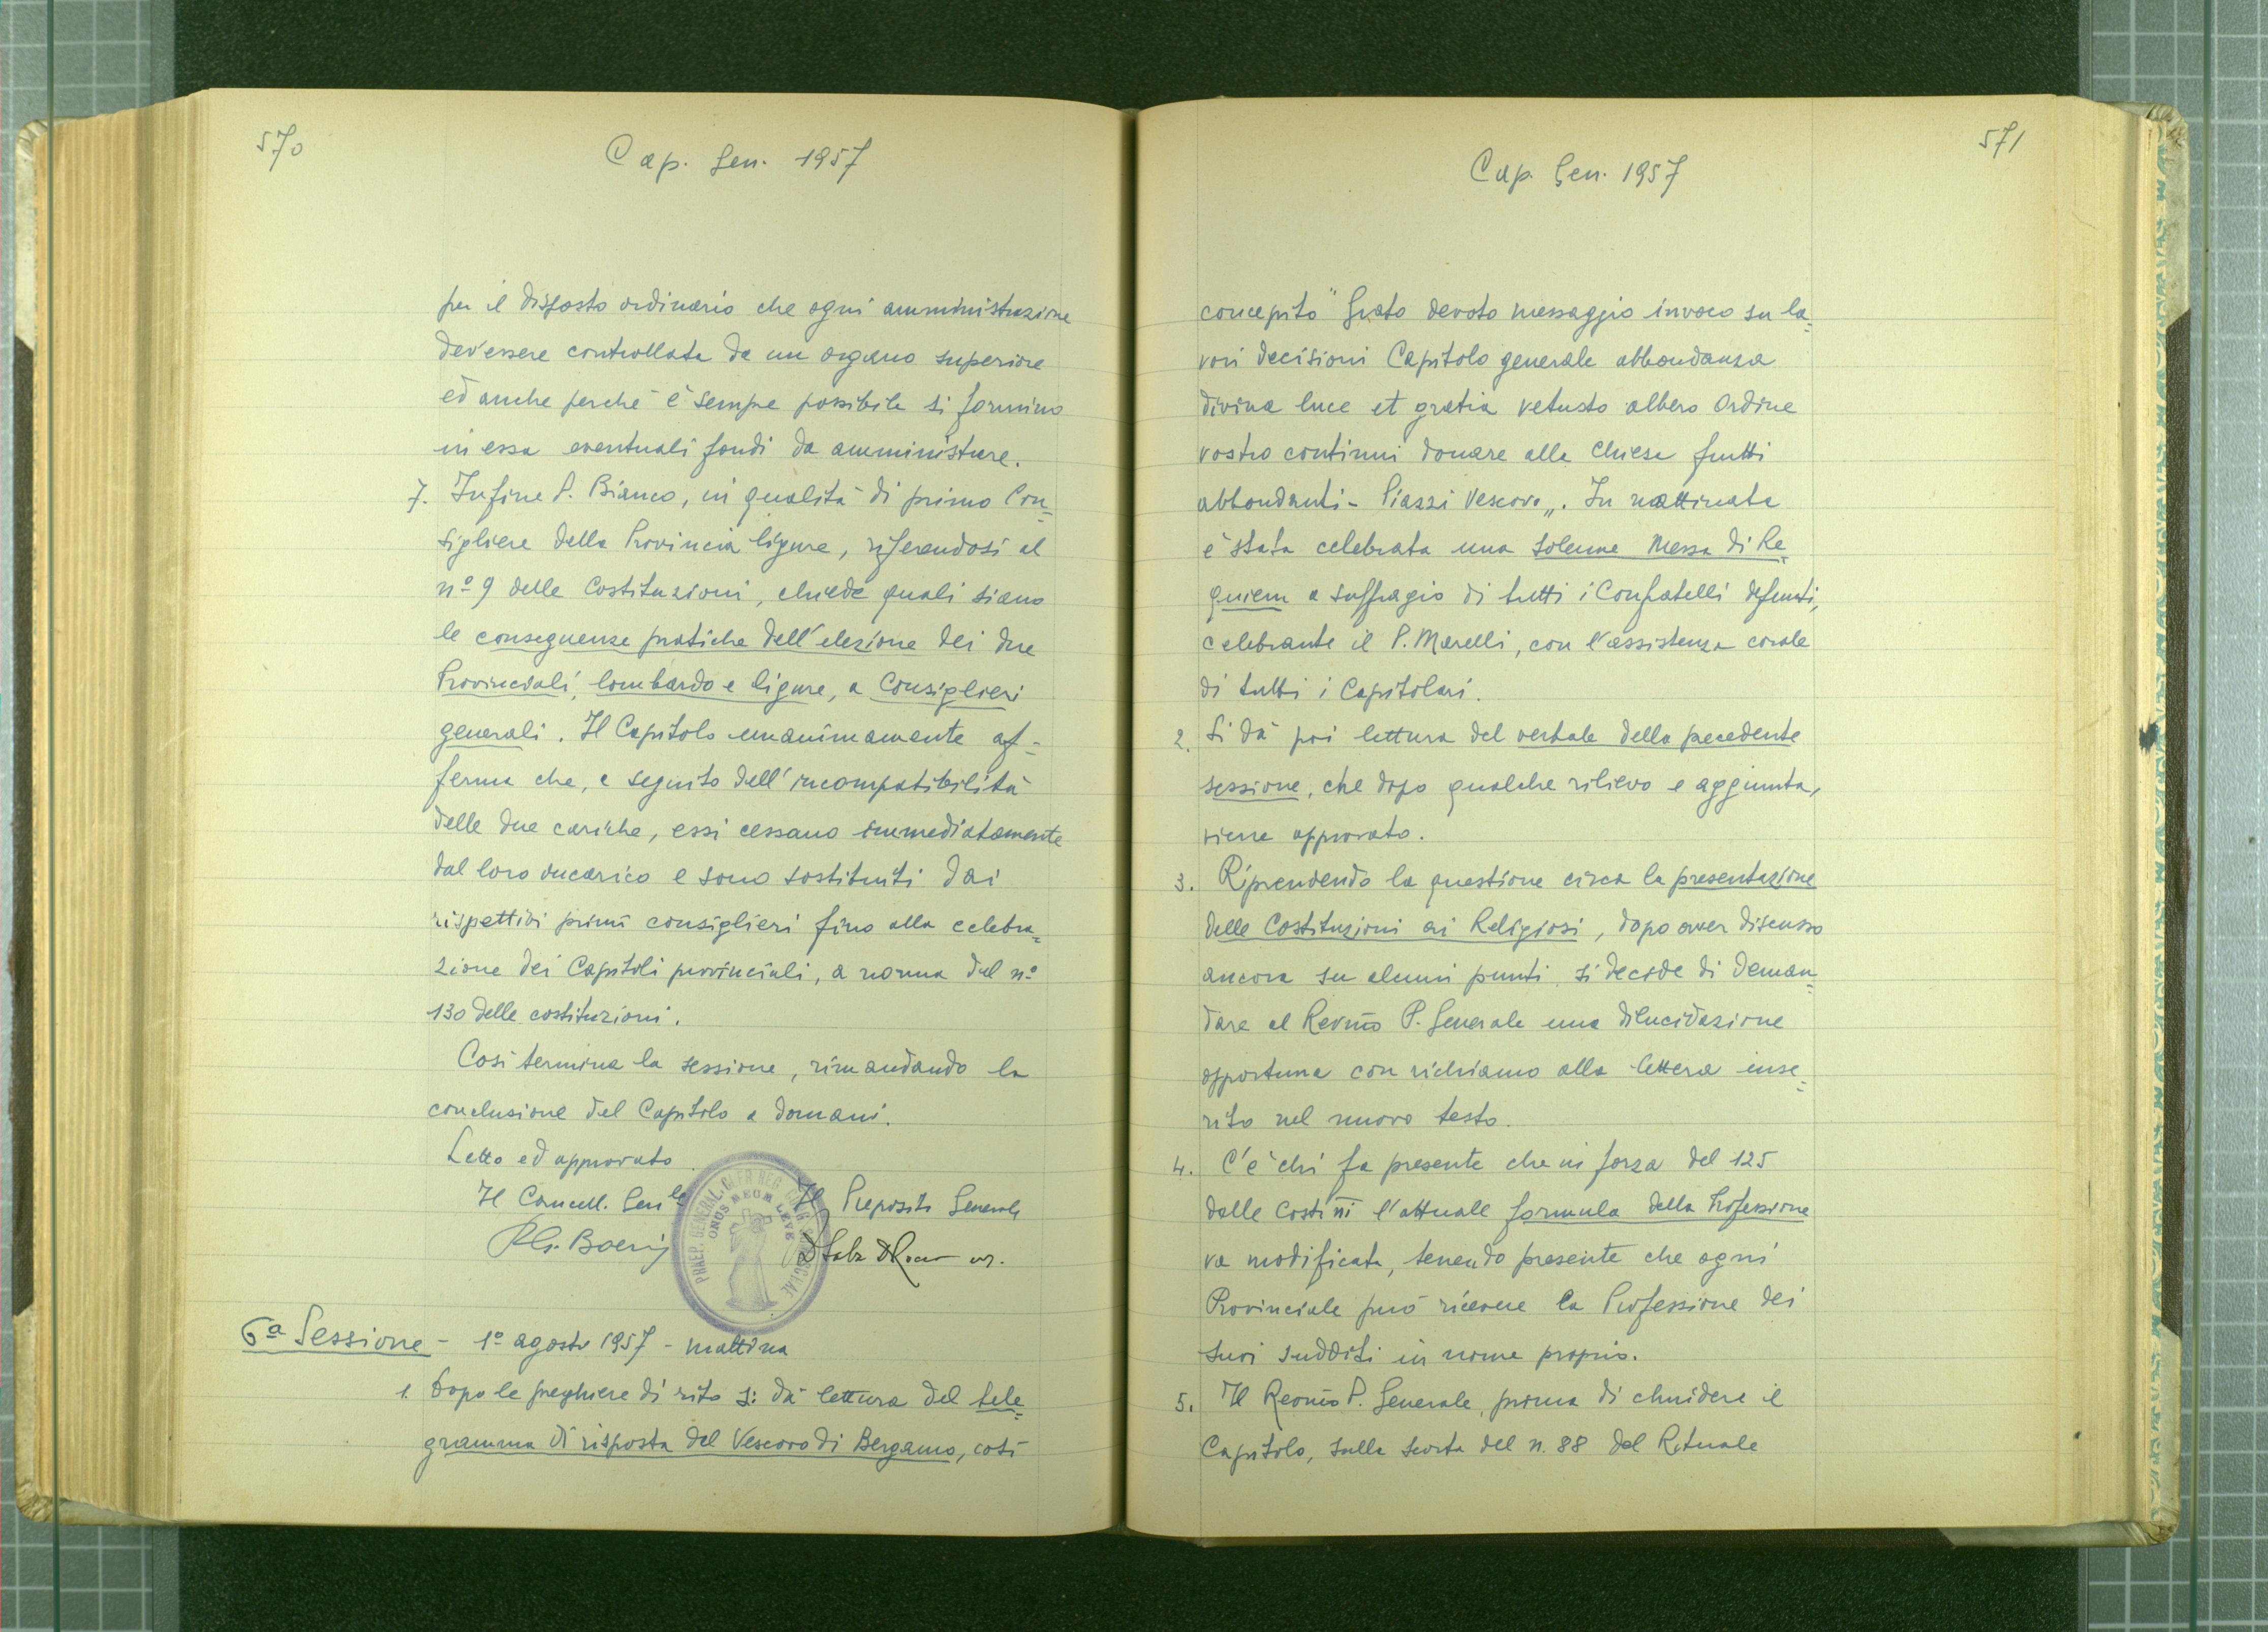 570
Cap. Gen. 1957
per il disposto ordinario che ogni amministrazione
dev'essere controllata da un organo superiore
ed anche perchè è sempre possibile si formino
in essa eventuali fondi da amministrare.
7. Infine P. Bianco, in qualità di primo Con=
sigliere della Provincia ligure, riferendosi al
nº 9 delle Costituzioni, chiede quali siano
le conseguenze pratiche dell'elezione dei due
Provinciali, lombardo e ligure, a Consiglieri
generali. Il Capitolo unanimamente af=
ferma che, a seguito dell'incompatibilità
delle due cariche, essi cessano immediatamente
dal loro incarico e sono sostituiti dai
rispettivi primi consiglieri fino alla celebra=
zione dei Capitoli provinciali, a norma del nº
130 delle costituzioni.
Così termina la sessione, rimandando la
conclusione del Capitolo a domani.
Letto ed approvato.
Il Cancell. Gen.le Il Preposito Generale
ONUS MEUM LEVE
PRAEP. GENERAL. CLER. REG.
6ª Sessione - 1º agosto 1957 - mattina
1. Dopo le preghiere di rito si dà lettura del tele=
gramma di risposta del Vescovo di Bergamo, così
571
Cap. Gen. 1957
concepito "Grato devoto messaggio invoco su la=
vori decisioni Capitolo generale abbondanza
divina luce et gratia vetusto albero Ordine
vostro continui donare alla Chiesa frutti
abbondanti - Piazzi Vescovo„. In mattinata
è stata celebrata una solenne Messa di Re=
quiem a suffragio di tutti i Confratelli defunti,
celebrante il P. Marelli, con l'assistenza corale
di tutti i Capitolari.
2. Si dà poi lettura del verbale della precedente
sessione, che dopo qualche rilievo e aggiunta,
viene approvato.
3. Riprendendo la questione circa la presentazione
delle Costituzioni ai Religiosi, dopo aver discusso
ancora su alcuni punti, si decide di deman=
dare al Rev.mo P. Generale una dilucidazione
opportuna con richiamo alla lettera inse=
rita nel nuovo testo.
4. C'è chi fa presente che in forza del 125
delle Costi.ni l'attuale formula della Professione
va modificata, tenendo presente che ogni
Provinciale può ricevere la Professione dei
suoi sudditi in nome proprio.
5. Il Rev.mo P. Generale, prima di chiudere il
Capitolo, sulla scorta del n. 88 del Rituale